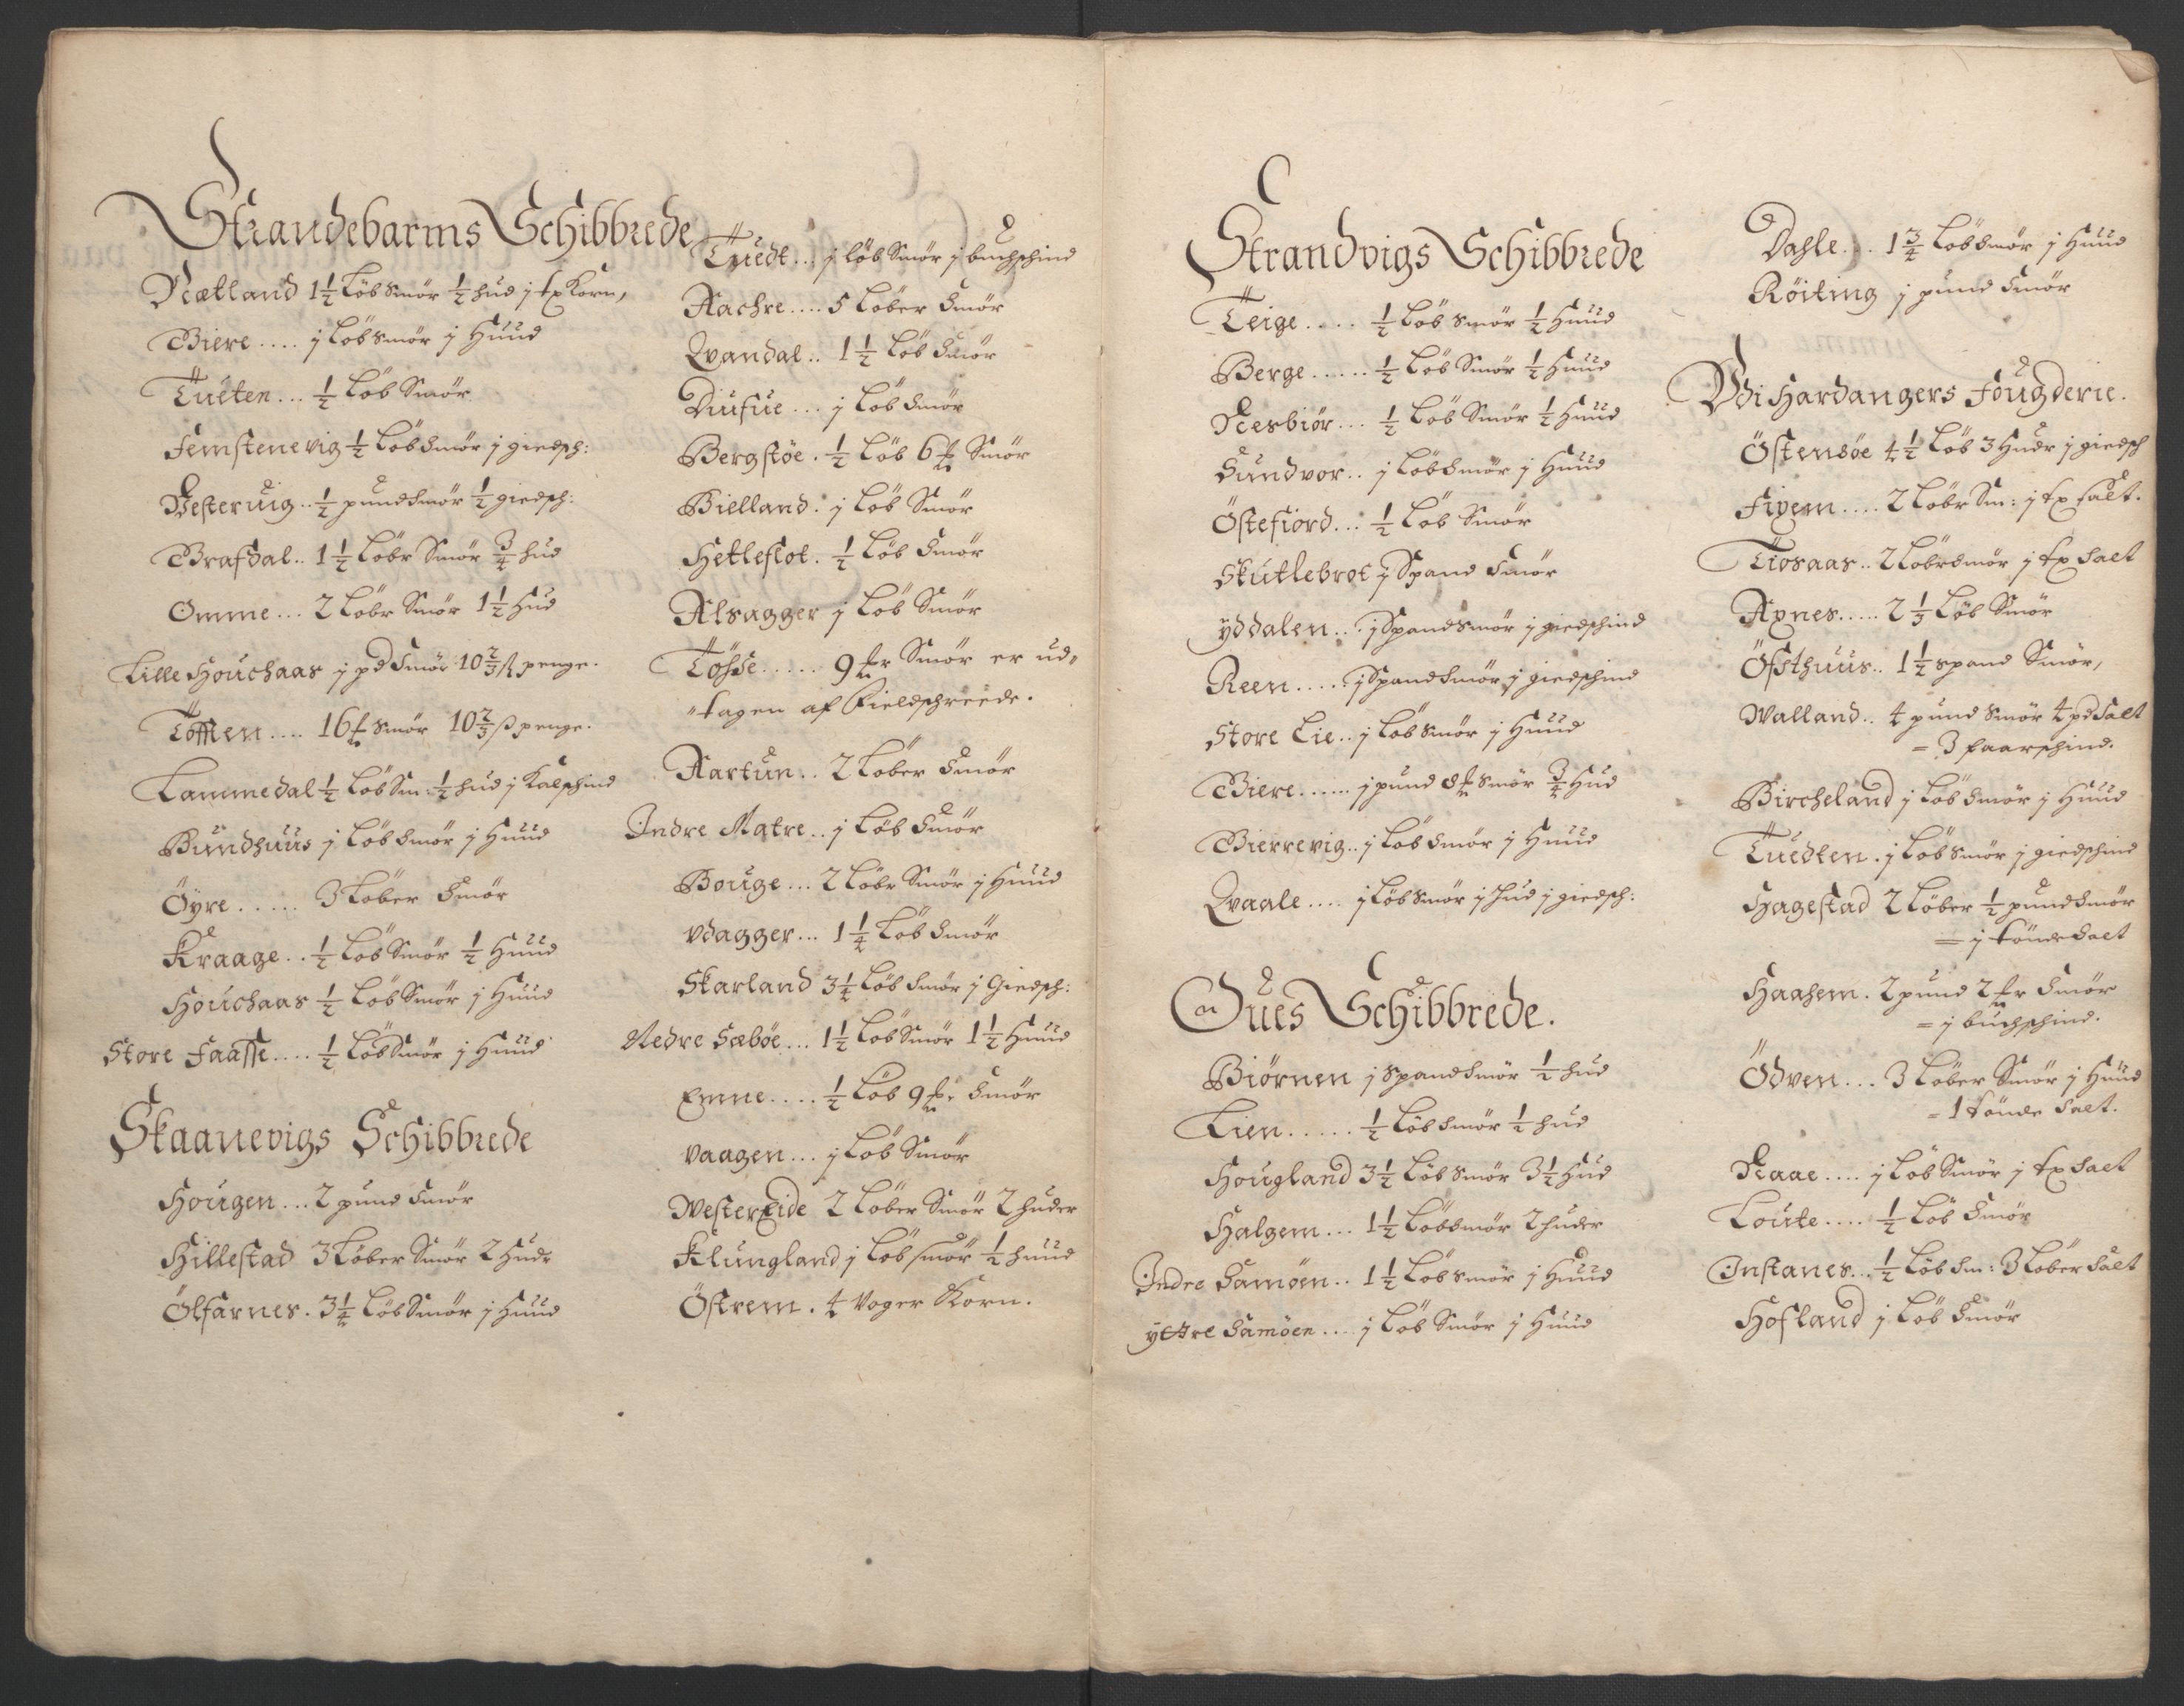 Strandebarms Schibbrede
Nætland 1½ Löb Smör ½ hud j tx Korn,
Biere .... j Löb Smör j Huud
Tueten ... ½ Löb Smör
Femstenevig ½ Löb Smör j giedsch:
Vestervig .. ½ pund Smör ½ giedsch:
Brafdal .. 1½ Löbr Smör ¾ hud
Omme ... 2 Löbr Smör 1½ Hud
Lille Houchaas j pd Smör 10⅔ ß penge.
.... 16 Smör 10⅔ ß penge.
Lammedal ½ Löb Sm: ½ hud j Kalschind
Bundhuus j Löb Smör j Huud
Öyre ..... 3 Löber Smör
Kraage .. ½ Löb Smör ½ Huud
Houchaas ½ Löb Smör j Huud
Store Faasse .... ½ Löb Smör j Huud
Skaanevigs Schibbrede
Hougen ... 2 pund Smör
Hillestad 3 Löber Smör 2 Hudr
Ölfarnes . 3¼ Löb Smör j Huud
Tuedt ... j löb Smör j buchschind
Aachre .... 5 Löber Smör
Qvandal .. 1½ Löb Smör
Diufue ... j Löb Smör
Bergstöe . ½ Löb 6 Smör
Bielland . j Löb Smör
Hetleflot . ½ Löb Smör
Alsagger j Löb Smör
Tösse ..... 9 Smör er ud„
„tagen af Fieldschreede.
Aartun .. 2 Löber Smör
Indre Matre .. j Löb Smör
Bouge ... 2 Löbr Smör j Huud
Vdagger ... 1¼ Löb Smör
Skarland 3¼ Löb Smör j Giedsch:
Nedre Sæböe ... 1½ Löb Smör 1½ Huud
Emne .... ½ Löb 9 Smör
Vaagen ... j Löb Smör
Wester Eide 2 Löber Smör 2 huder
Klungland j Löb smör ½ huud
Östrem . 4 Voger Korn.
Strandvigs Schibbrede
Teige .... ½ Löb Smör ½ Huud
Berge ..... ½ Löb Smör ½ Huud
Nesbiör ... ½ Löb Smör ½ Huud
Sundvor .. j Löb Smör j Huud
Östefiord ... ½ Löb Smör
Skutlebrot j Spand Smör
Yddalen ... j Spand Smör j giedschind
Reen ..... j Spand Smör j giedschind
Store Lie .. j Löb Smör j Huud
Biere ...... j pund 8 Smör ¾ Hud
Bierrevig .. j Löb Smör j Huud
Qvaale .... j Löb Smör j Hud j giedsch:
Oues Schibbrede.
Biörnen j Spand Smör ½ hud
Lien ..... ½ Löb Smör ½ hud
Hougland 3½ Löb Smör 3½ Hud
Halgem ... 1½ Löb Smör 2 huder
Indre Samöen .. 1½ Löb Smör j Huud
Yttre Samöen .... j Löb Smör j Huud
Dahle ... 1¾ Löb Smör j Huud
Röiting j pund Smör
Vdi Hardangers Fougderie.
Östensöe 4½ Löb 3 Hudr j giedsch
Fixem .... 2 Löbr Sm: j tx salt.
Tiosaas .. 2 Löbr Smör j tx Salt
Axnes ..... 2⅓ Löb Smör
Öfsthuus .. 1½ spand Smör,
Walland .. 4 pund Smör 4 pd Salt
= 3 faarschind.
Bircheland j Löb Smör j Huud
Tuedten . j Löb Smör j giedschind
Hagestad 2 Löber ½ pund Smör
= j tönde Salt
Haahem . 2 pund 2 Smör
= j buchschind.
Ödven ... 3 Löber Smör j Huud
= 1 tönde Salt.
Raae .... j Löb Smör j tx Salt
Loute .... ½ Löb Smör
Instanes ... ½ Löb Sm: 3 Löber Salt
Hofland j Löb Smör